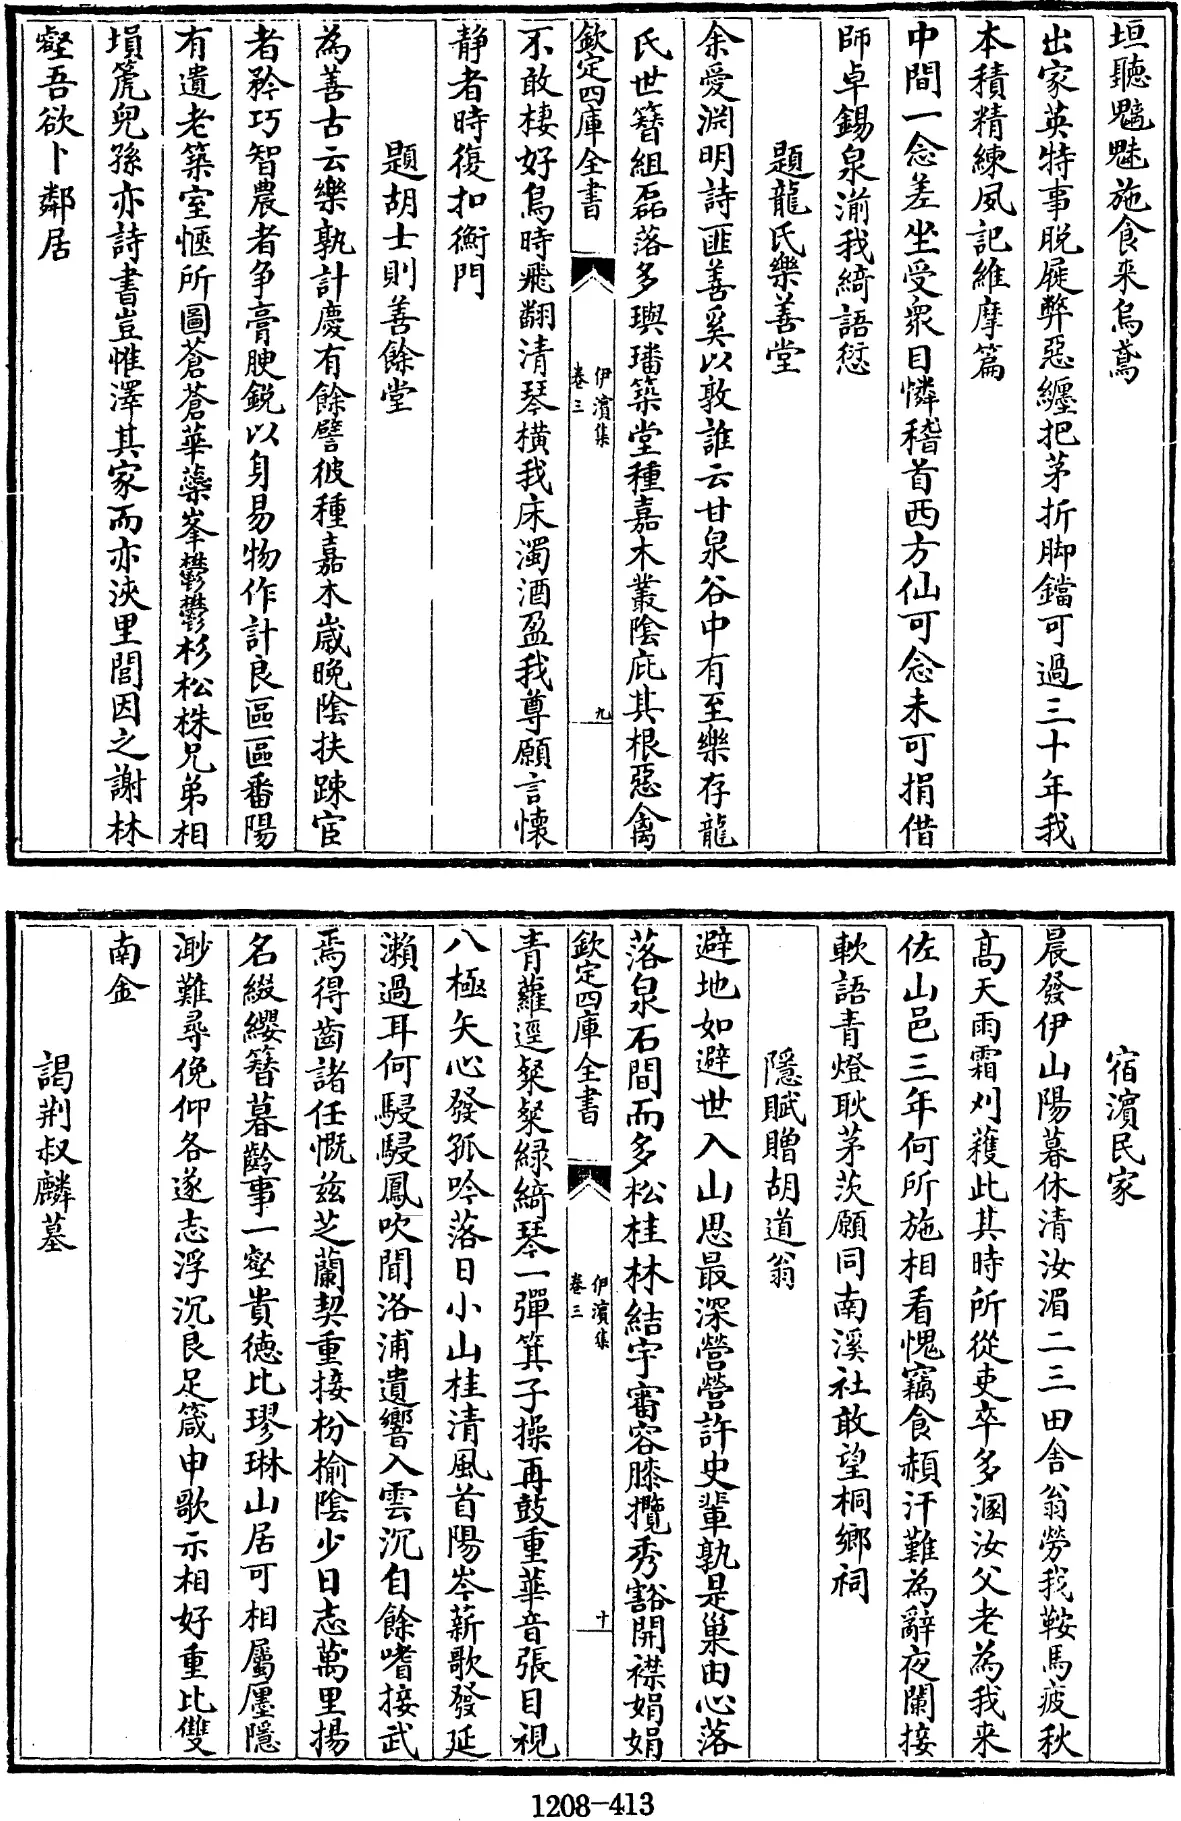 垣聽魑魅施食来烏鳶
出家英特事脱屣弊惡纏把茅折脚鐺可過三十年我
本積精練夙記維摩篇
中間一念差坐受衆目憐稽首西方仙可念未可捐借
師卓錫泉湔我綺語愆
題龍氏樂善堂
余愛淵明詩匪善奚以敦誰云甘泉谷中有至樂存龍
氏世簪組磊落多璵璠築堂種嘉木叢陰庇其根惡禽
欽定四庫全書
伊濱集
卷三
九
不敢棲好鳥時飛翻清琴横我床濁酒盈我尊願言懐
静者時復扣衡門
題胡士則善餘堂
為善古云樂孰計慶有餘譬彼種嘉木歳晩陰扶踈宦
者矜巧智農者争膏腴鋭以身易物作計良區區番陽
有遺老築室愜所圖蒼蒼華蘂峯鬱鬱杉松株兄弟相
塤箎兒孫亦詩書豈惟澤其家而亦浹里閭因之謝林
壑吾欲卜鄰居
宿濵民家
晨發伊山陽暮休清汝湄二三田舎翁勞我鞍馬疲秋
高天雨霜刈穫此其時所從吏卒多溷汝父老為我来
佐山邑三年何所施相看愧竊食頳汗難為辭夜闌接
軟語青燈耿茅茨願同南溪社敢望桐鄉祠
隱賦贈胡道翁
避地如避世入山思最深營營許史輩孰是巢由心落
落泉石間而多松桂林結宇審容膝攬秀豁開襟娟娟
欽定四庫全書
伊濵集
卷三
十
青蘿逕粲粲緑綺琴一彈箕子操再鼓重華音張目視
八極矢心發孤吟落日小山桂清風首陽岑薪歌發延
瀨過耳何駸駸鳳吹聞洛浦遺響入雲沉自餘嗜接武
焉得齒諸任慨兹芝蘭契重接枌榆陰少日志萬里揚
名綴纓簪暮齡事一壑貴德比璆琳山居可相屬廛隱
渺難尋俛仰各遂志浮沉良足箴申歌示相好重比雙
南金
謁荆叔麟墓
1208-413